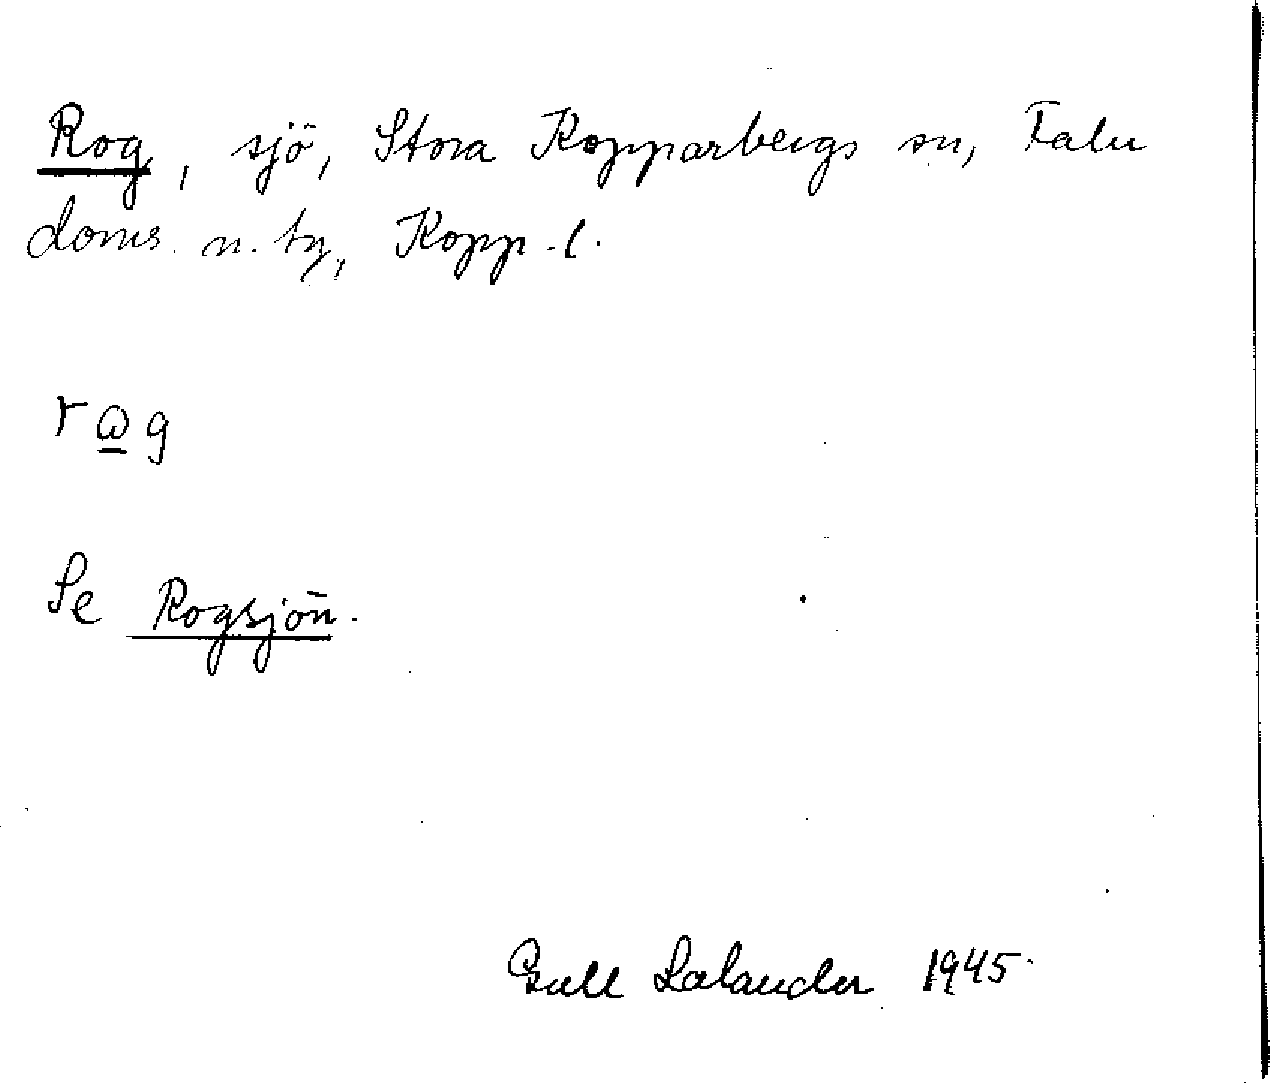 Rog, sjö, Stora Kopparbergs sn, Falu
doms. n. tg, Kopp. l.
r ω g
Se Rogsjön.
Gull Lalander 1945